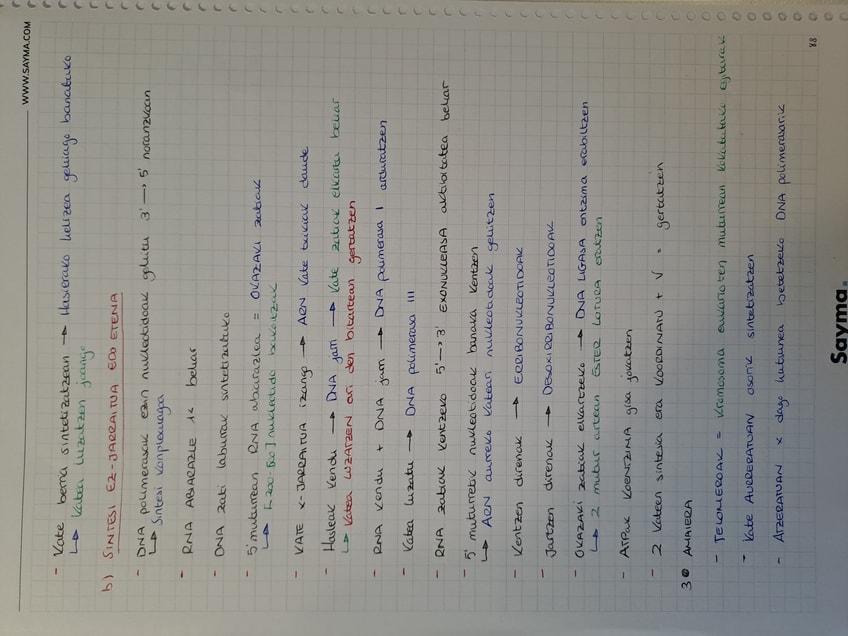 WWW.SAYMA.COM
- Kate berria sintetizatzean → Hasierako helizea gehiago banatuko
↳ Katea luzatzen joango
b) SINTESI EZ-JARRAITUA EDO ETENA
- DNA polimerasak ezin nukleotidoak gehitu 3' → 5' noranzkoan
↳ Sintesi konplexuagoa
- RNA ABIARAZLE 1k behar
- DNA zati laburrak sintetizatuko
- 5' muturrean RNA abiarazlea = OKAZAKI zatiak
↳ [200-500] nukleotido bakoitzak
- KATE X-JARRAITUA izango → ARN Kate txikiak daude
- Hasleak Kendu → DNA jarri → Kate zatiak elkartu behar
↳ Katea LUZATZEN ari den bitartean gertatzen
- RNA Kendu + DNA jarri → DNA polimerasa I arduratzen
- Katea luzatu → DNA polimerasa III
- RNA zatiak Kentzeko 5' → 3' EXONUKLEASA aktibitatea behar
- 5' muturretik nukleotidoak banaka Kentzen
↳ ARN aurreko Katean nukleotidoak gehitzen
- Kentzen direnak → ERRIBONUKLEOTIDOAK
- Jartzen direnak → DESOXIRRIBONUKLEOTIDOAK
- OKAZAKI zatiak elkartzeko → DNA LIGASA entzima erabiltzen
↳ 2 mutur artean ESTER LOTURA eratzen
- ATPak KOENTZIMA gisa jokatzen
- 2 Kateen sintesia era KOORDINATU + V = gertatzen
3 AMAIERA
- TELOMEROAK = Kromosoma eukarioten muturrean Kokatutako egiturak
- Kate AURRERATUAN osorik sintetizatzen
- ATZERATUAN x dago hutsunea betetzeko DNA polimerasarik
88
Sayma